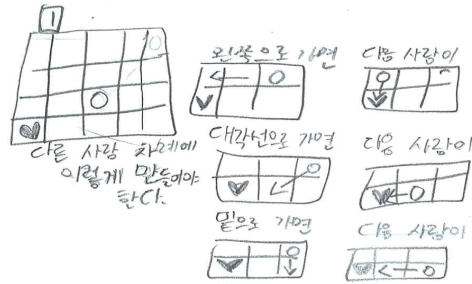 1
다른 사람 차례에
이렇게 만들어야
한다.
왼쪽으로 가면
다음 사람이
대각선으로 가면
다음 사람이
밑으로 가면
다음 사람이